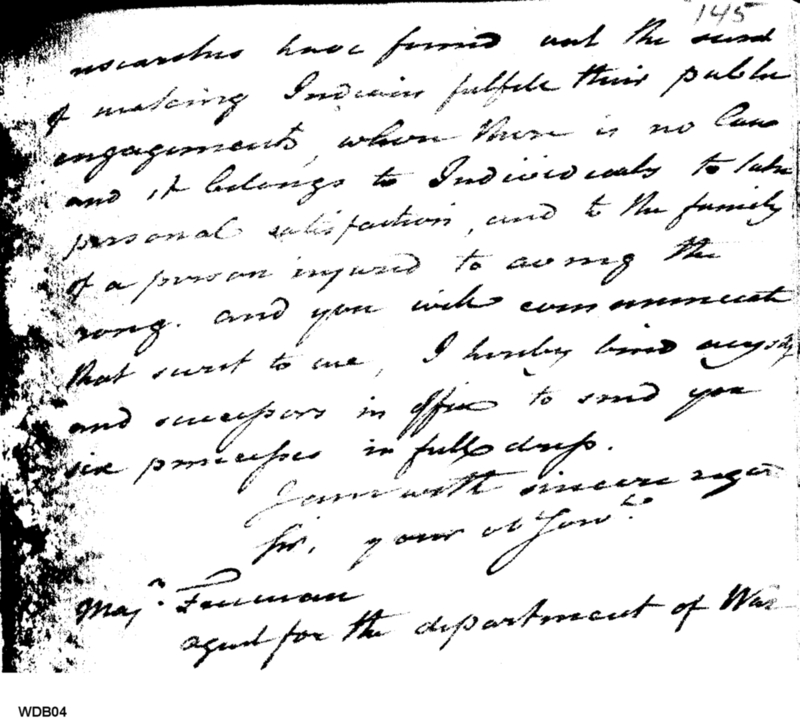 145
researches have found out the secret
of making Indians fulfill their public
engagements, where there is no law
and it belongs to Individuals to take
personal satisfaction, and to the family
of a person injured to aveng the
rong. and you will communicate
that secret to me, I hereby bind myself
and successors in office to send you
six princesses in full dress.
I am with sincere regar
Sir, your ob
Majr. Freeman
agent for the department of War
WDB04